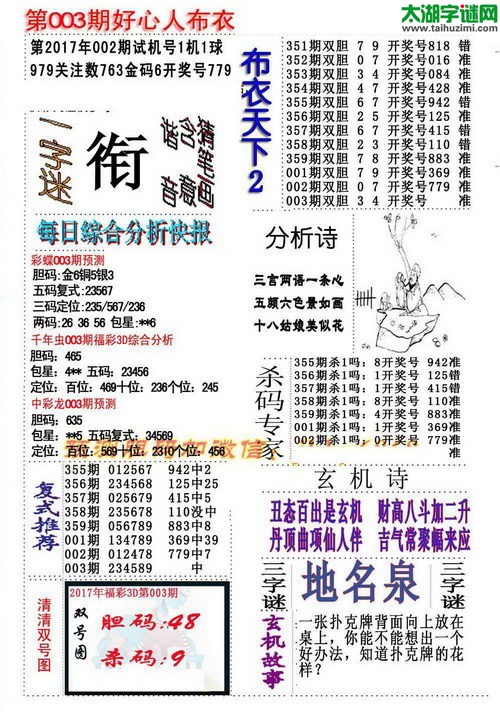 第003期好心人布衣
太湖字谜网
www.taihuzimi.com
第2017年002期试机号1机1球
979关注数763金码6开奖号779
一字迷
衔
猜笔画
含意
谐音
布衣天下2
351期双胆 7 9 开奖号818 错
352期双胆 0 7 开奖号016 准
353期双胆 3 4 开奖号084 准
354期双胆 4 5 开奖号428 准
355期双胆 6 7 开奖号942 错
356期双胆 2 5 开奖号125 准
357期双胆 6 7 开奖号415 错
358期双胆 2 3 开奖号110 错
359期双胆 7 8 开奖号883 准
001期双胆 7 9 开奖号369 准
002期双胆 0 7 开奖号779 准
003期双胆 3 4 开奖号
每日综合分析快报
彩蝶003期预测
胆码:金6铜5银3
五码复式:23567
三码定位:235/567/236
两码:26 36 56 包星:**6
千年虫003期福彩3D综合分析
胆码: 465
包星: 4** 五码: 23456
定位: 百位: 469十位: 236个位: 245
中彩龙003期预测
胆码: 635
包星: **5 五码复式: 34569
定位: 百位: 569十位: 2310个位: 456
分析诗
三言两语一条心
五颜六色景如画
十八姑娘美似花
杀码专家
355期杀1吗: 8开奖号 942准
356期杀1吗: 1开奖号 125错
357期杀1吗: 1开奖号 415错
358期杀1吗: 3开奖号 110准
359期杀1吗: 4开奖号 883准
001期杀1吗: 1开奖号 369准
002期杀1吗: 0开奖号 779准
003期杀1吗: 7开奖号 准
复式推荐
355期 012567 942中2
356期 234568 125中25
357期 025679 415中5
358期 235678 110没中
359期 056789 883中8
001期 134789 369中39
002期 012467 779中7
003期 234589 中
玄机诗
丑态百出是玄机 财高八斗加二升
丹顶曲项仙人伴 吉气常聚幅来应
三字谜
地名泉
三字谜
清清双号图
2017年福彩3D第003期
双号图
胆码:48
杀码:9
玄机故事
一张扑克牌背面向上放在
桌上,你能不能想出一个
好办法,知道扑克牌的花
样?